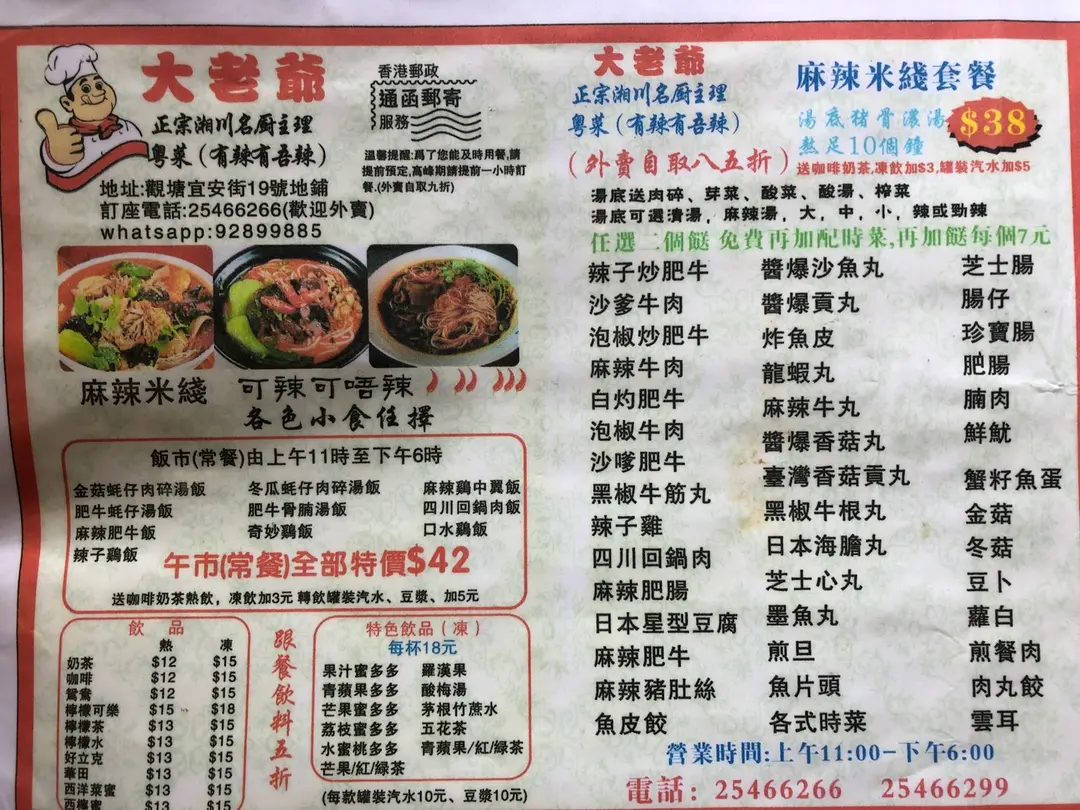 大老爺
正宗湘川名厨主理
粵菜(有辣有吾辣)
香港郵政
通函郵寄
服務
溫馨提醒:爲了您能及時用餐,請
提前預定,高峰期請提前一小時訂
餐.(外賣自取九折)
地址:觀塘宜安街19號地鋪
訂座電話:25466266(歡迎外賣)
whatsapp:92899885
麻辣米綫 可辣可唔辣
各色小食任擇
飯市(常餐)由上午11時至下午6時
金菇蚝仔肉碎湯飯 冬瓜蚝仔肉碎湯飯 麻辣鷄中翼飯
肥牛蚝仔湯飯 肥牛骨腩湯飯 四川回鍋肉飯
麻辣肥牛飯 奇妙鷄飯 口水鷄飯
辣子鷄飯
午市(常餐)全部特價$42
送咖啡奶茶熱飲，凍飲加3元 轉飲罐裝汽水、豆漿、加5元
飲品
熱 凍
奶茶 $12 $15
咖啡 $12 $15
鴛鴦 $12 $15
檸檬可樂 $15 $18
檸檬茶 $13 $15
檸檬水 $13 $15
好立克 $13 $15
華田 $13 $15
西洋菜蜜 $13 $15
西檸蜜 $13 $15
跟餐飲料五折
特色飲品(凍)
每杯18元
果汁蜜多多 羅漢果
青蘋果多多 酸梅湯
芒果蜜多多 茅根竹蔗水
荔枝蜜多多 五花茶
水蜜桃多多 青蘋果/紅/綠茶
芒果/紅/綠茶
(每款罐裝汽水10元、豆漿10元)
大老爺
正宗湘川名厨主理
粵菜(有辣有吾辣)
(外賣自取八五折)
麻辣米綫套餐
湯底豬骨濃湯
熬足10個鐘
$38
送咖啡奶茶,凍飲加$3,罐裝汽水加$5
湯底送肉碎、芽菜、酸菜、酸湯、榨菜
湯底可選清湯，麻辣湯，大，中，小，辣或勁辣
任選二個餸 免費再加配時菜,再加餸每個7元
辣子炒肥牛 醬爆沙魚丸 芝士腸
沙爹牛肉 醬爆貢丸 腸仔
泡椒炒肥牛 炸魚皮 珍寶腸
麻辣牛肉 龍蝦丸 肥腸
白灼肥牛 麻辣牛丸 腩肉
泡椒牛肉 醬爆香菇丸 鮮魷
沙嗲肥牛 臺灣香菇貢丸 蟹籽魚蛋
黑椒牛筋丸 黑椒牛根丸 金菇
辣子雞 日本海膽丸 冬菇
四川回鍋肉 芝士心丸 豆卜
麻辣肥腸 墨魚丸 蘿白
日本星型豆腐 煎旦 煎餐肉
麻辣肥牛 魚片頭 肉丸餃
麻辣豬肚絲 各式時菜 雲耳
魚皮餃
營業時間:上午11:00-下午6:00
電話: 25466266 25466299